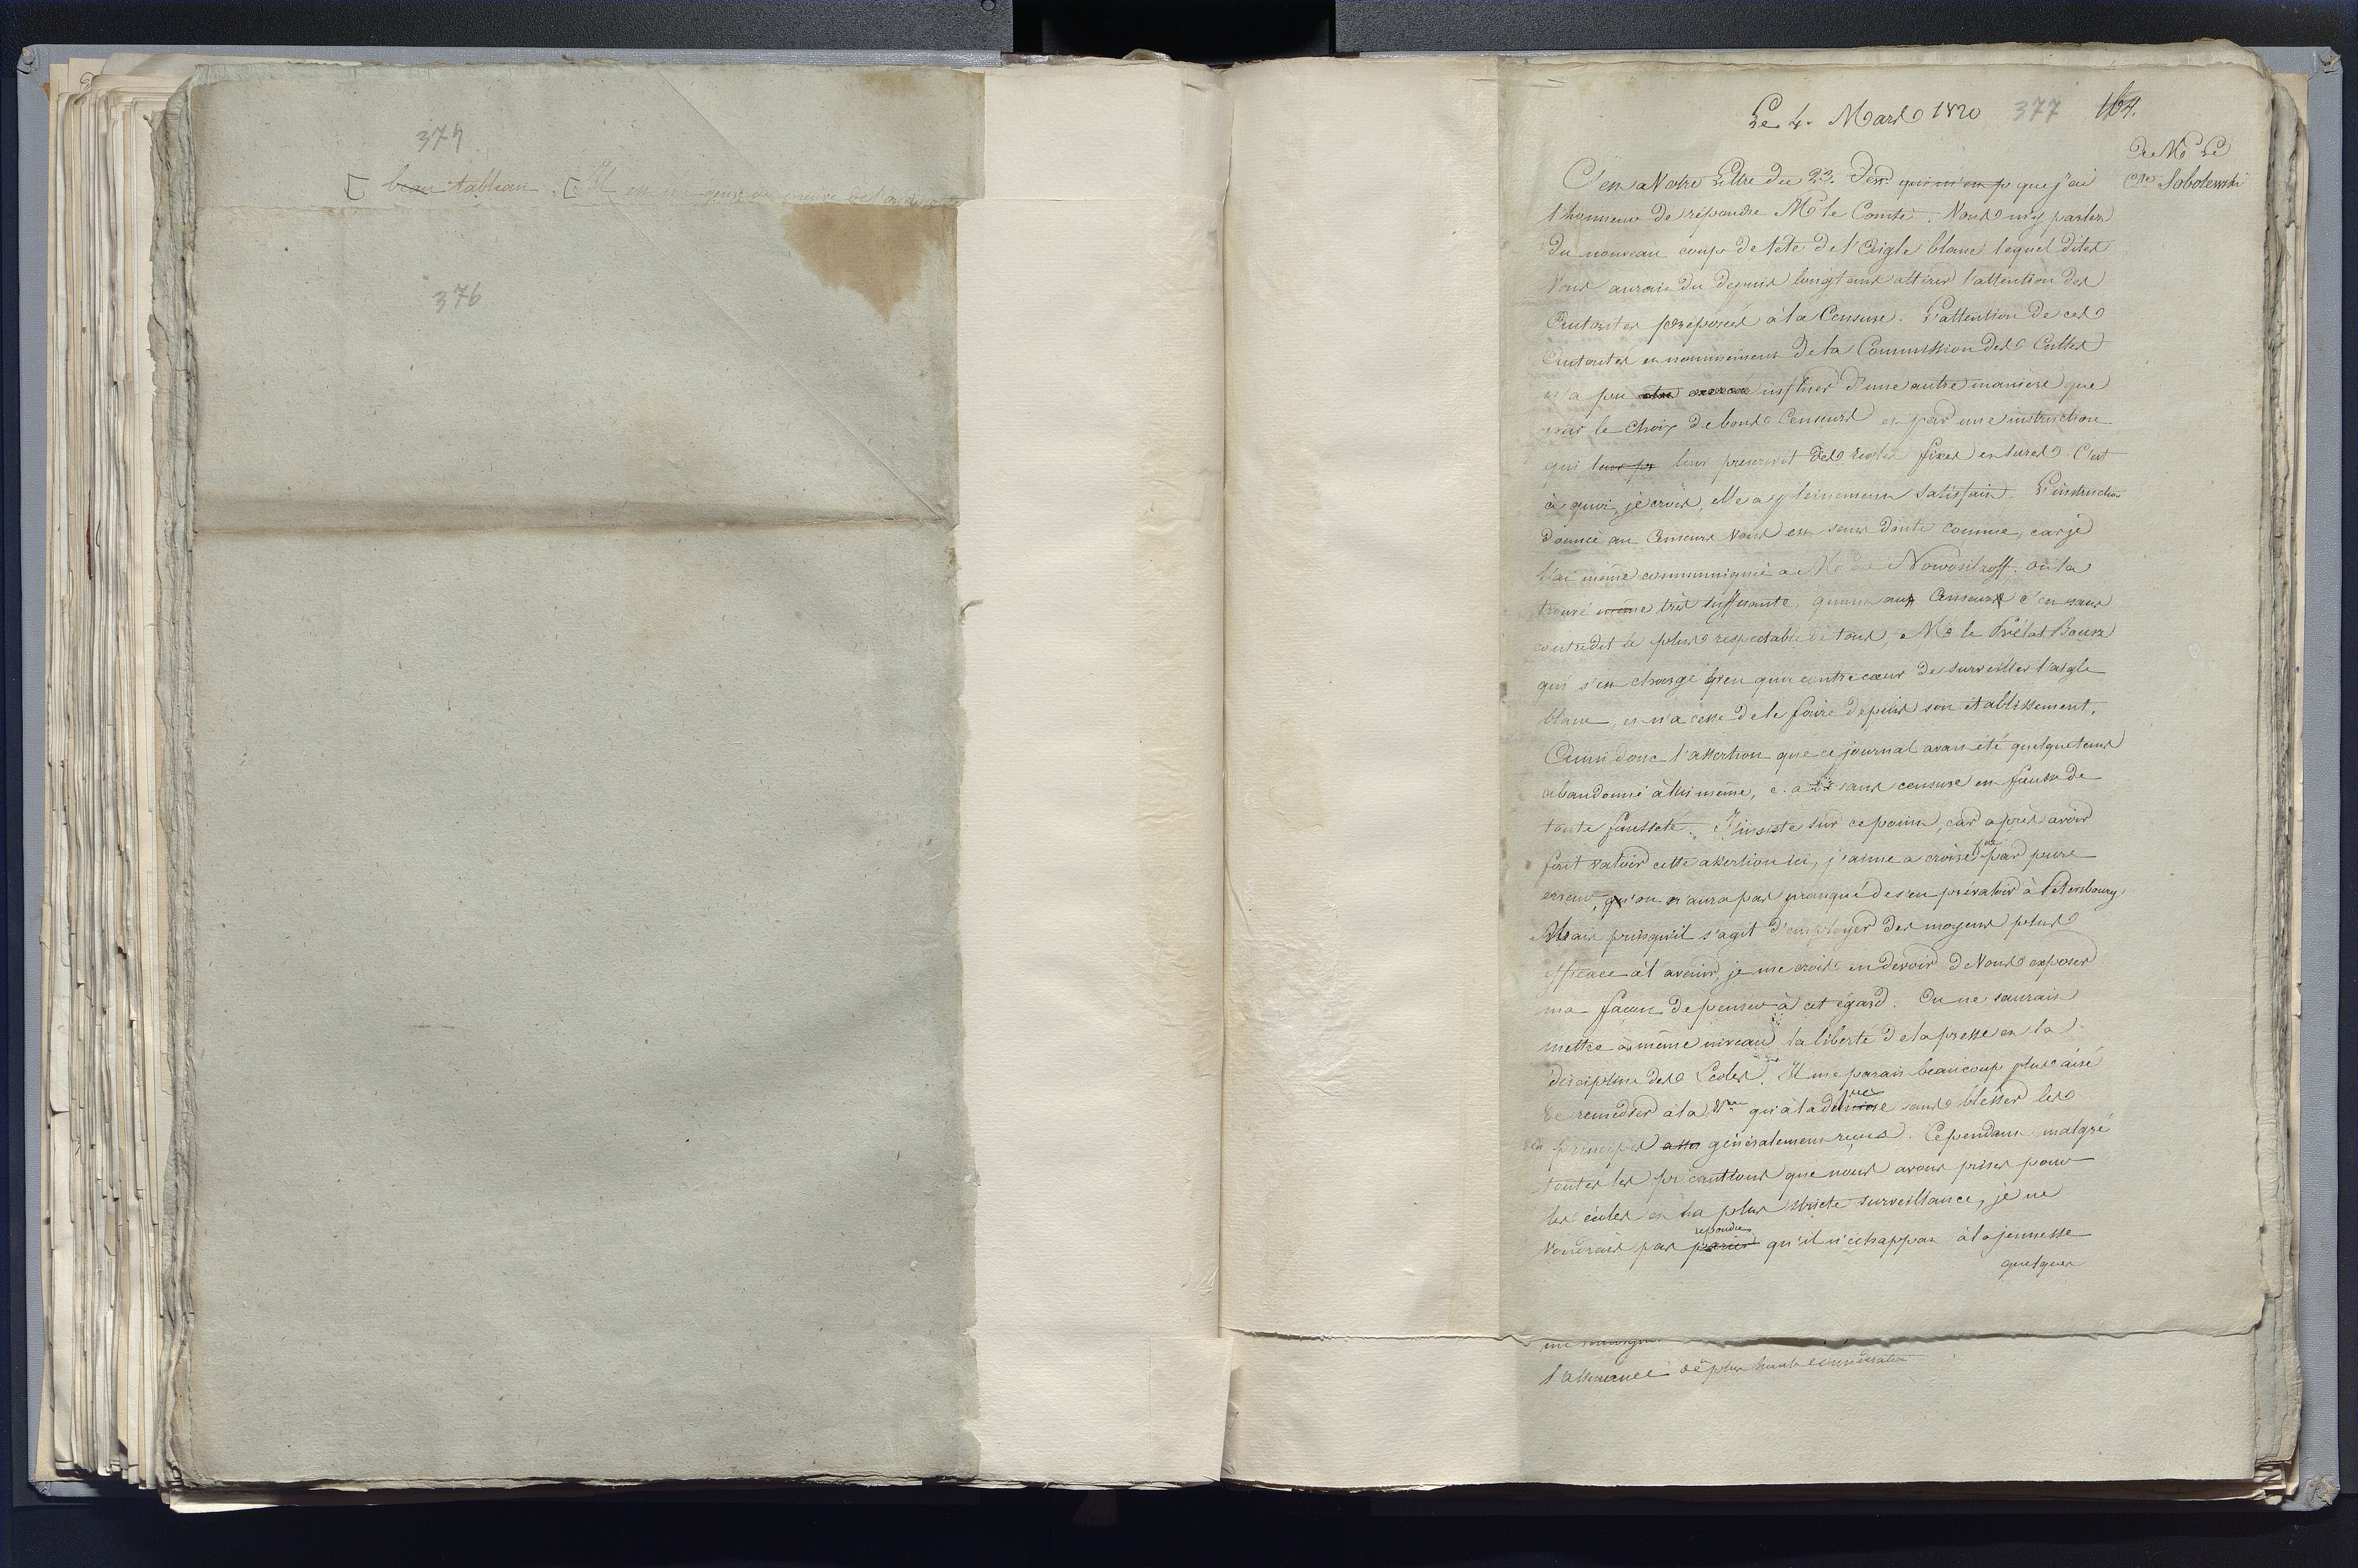 374
beau tableau. Il est un genre de
376
Le 4. Mars 1820 377 164.
De Mr Le
Cte Sobolewski
C'est a Votre Lettre du 23. que j'ai
l'honneur de répondre Mr le Comte. Vous m'y parlez
du nouveau coup de tete de l'Aigle blanc lequel dites
Vous aurait du depuis longtems attirer l'attention des
Autorites préposées à la Censure. L'attention de ces
Autorites et nommement de la Commission des Cultes
n'a pu influer d'une autre manière que
par le Choix de bons Censeurs et par une instruction
qui leur prescrivit des regles fixes et sures. C'est
à quoi, je crois, elle a pleinement satisfait. L'instruction
donnée au Censeurs Vous est sans doute connue, car je
l'ai même communiquée a Mr de Nowosiltzoff. on la
trouvé même très suffisante, quant aux Censeurs c'est sans
contredit le plus respectable de tous, Mr le Prélat
qui s'est chargé bien qu'a contre cœur de surveiller l'aigle
blanc, et n'a cessé de le faire depuis son établissement.
Ainsi donc l'assertion que ce journal avait été quelque tems
abandonné à lui même, c. a d. sans censure est fausse de
toute fausseté. J'insiste sur ce point, car après avoir
fait valoir cette assertion ici, j'aime a croire par pure
erreur, qu'on n'aura pas manqué de s'en prévaloir à Pétersbourg
Mais puisqu'il s'agit d'employer des moyens plus
efficace à l'avenir, je me crois en devoir de Vous exposer
ma facon de penser à cet égard. On ne saurait
mettre au même niveau la liberté de la presse et la
discipline des Ecoles. Il me parait beaucoup plus aisé
de remedier à la qu'à la sans blesser les
principes généralement reçus. Cependant malgré
toutes les précautions que nous avons prises pour
les écoles et la plus stricte surveillance, je ne
repondre
voudrais pas parier qu'il n'echappat à la jeunesse
quelques
l'assurance de plus haute consideration